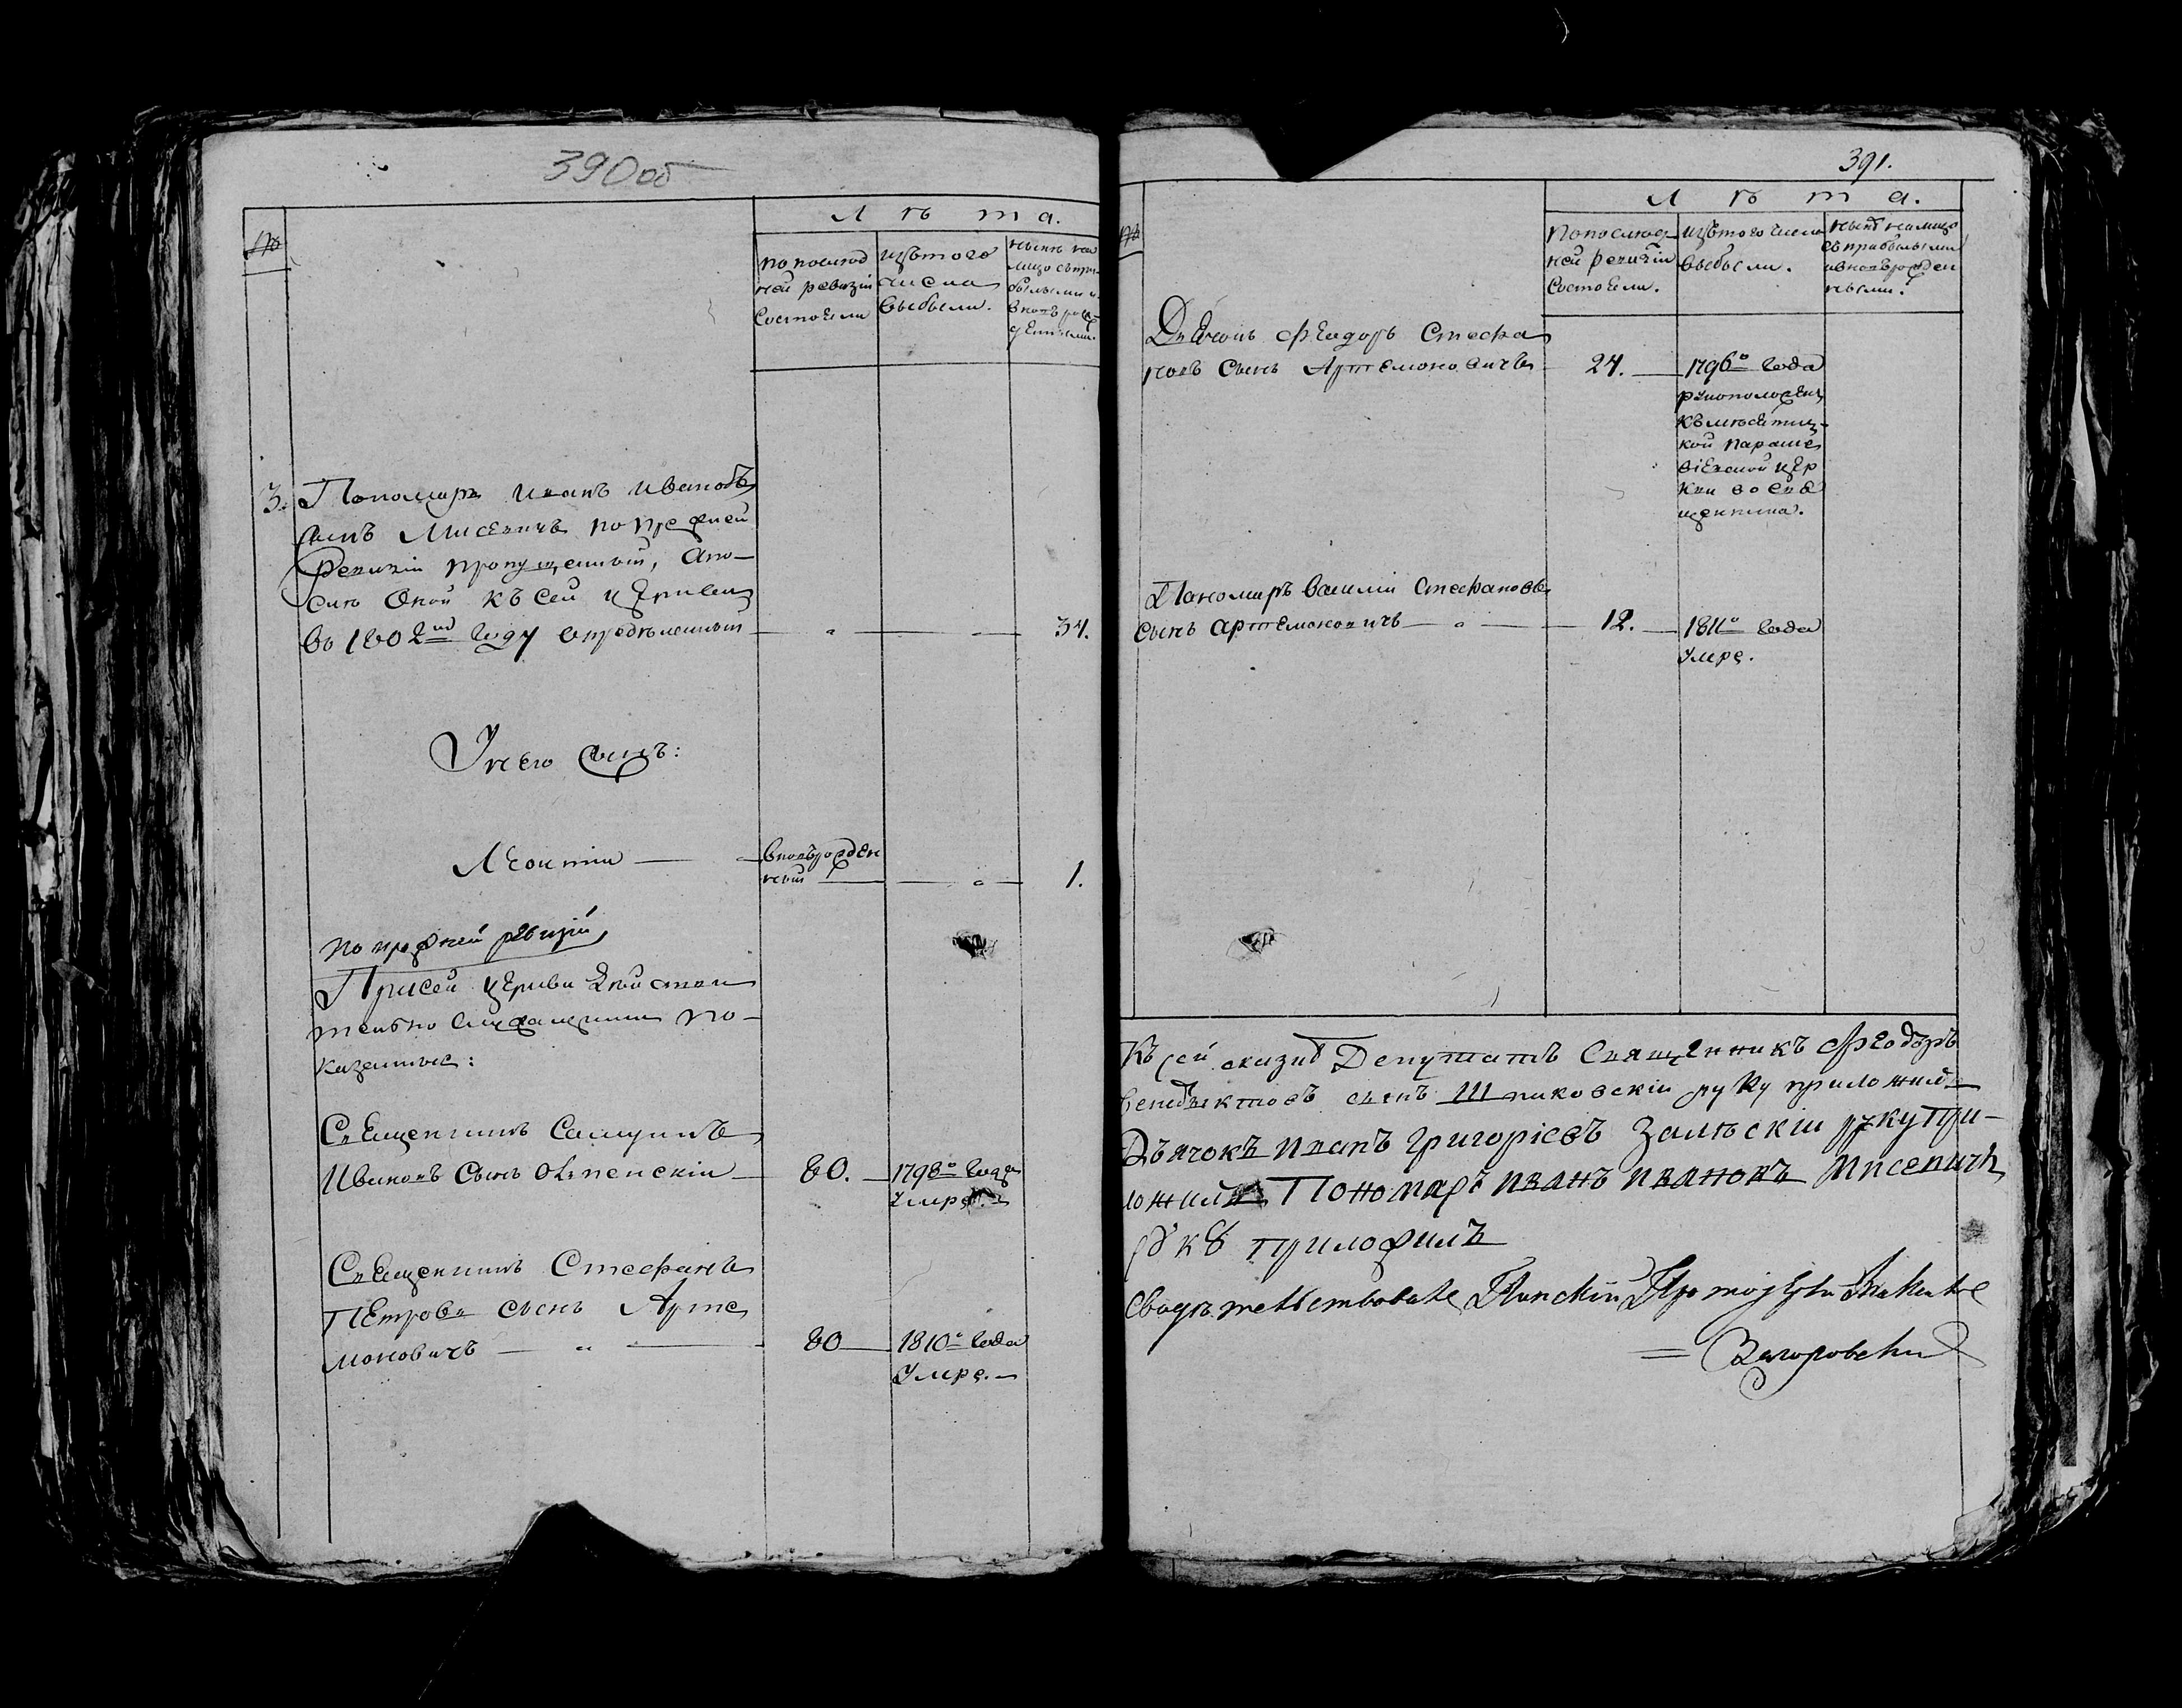 390 об
№
Лѣта.
по послѣд
ней ревизіи
состояли
изъ того
числа
выбыли.
нынѣ на
лицо съ при-
былыми и
вновь рож-
денными
3. Пономарь Иванъ Ивановъ
сынъ Мисевичъ по прежней
Ревизіи пропущенный, а по-
слѣ оной къ сей церкви
въ 1802мъ году опредѣленный
34.
У него сынъ:
Леонтій
вновь рожден
ный
1.
по прежней ревизіи,
При сей церкви дѣйстви
тельно священники по-
казанные:
Священникъ Самуилъ
Ивановъ сынъ Успенскій
60.
1798о года
умре.
Священникъ Стефанъ
Петровъ сынъ Арте
моновичъ
60
1810о года
умре.
391.
№
Лѣта.
по послѣд
ней ревизіи
состояли.
изъ того числа
выбыли.
нынѣ на лицо
съ прибылыми
и вновь рожден
ными.
Дьячокъ Феодоръ Стефа
новъ сынъ Артемоновичъ
24.
1796о года
рукоположенъ
къ
кой Параске
віевской цер
кви во свя
щенника.
Пономарь Василій Стефановъ
сынъ Артемоновичъ
12.
1811о года
умре.
Къ сей сказкѣ Депутатъ Священникъ Феодоръ
Венедиктовъ сынъ Шпиковскій руку приложилъ
Дьячокъ Иванъ Григоріевъ Залѣскій руку при-
ложилъ Пономарь Иванъ Ивановъ Мисевичъ
руку приложилъ
Свидѣтельствовалъ Пинскій Протоіерей
Загоровскій